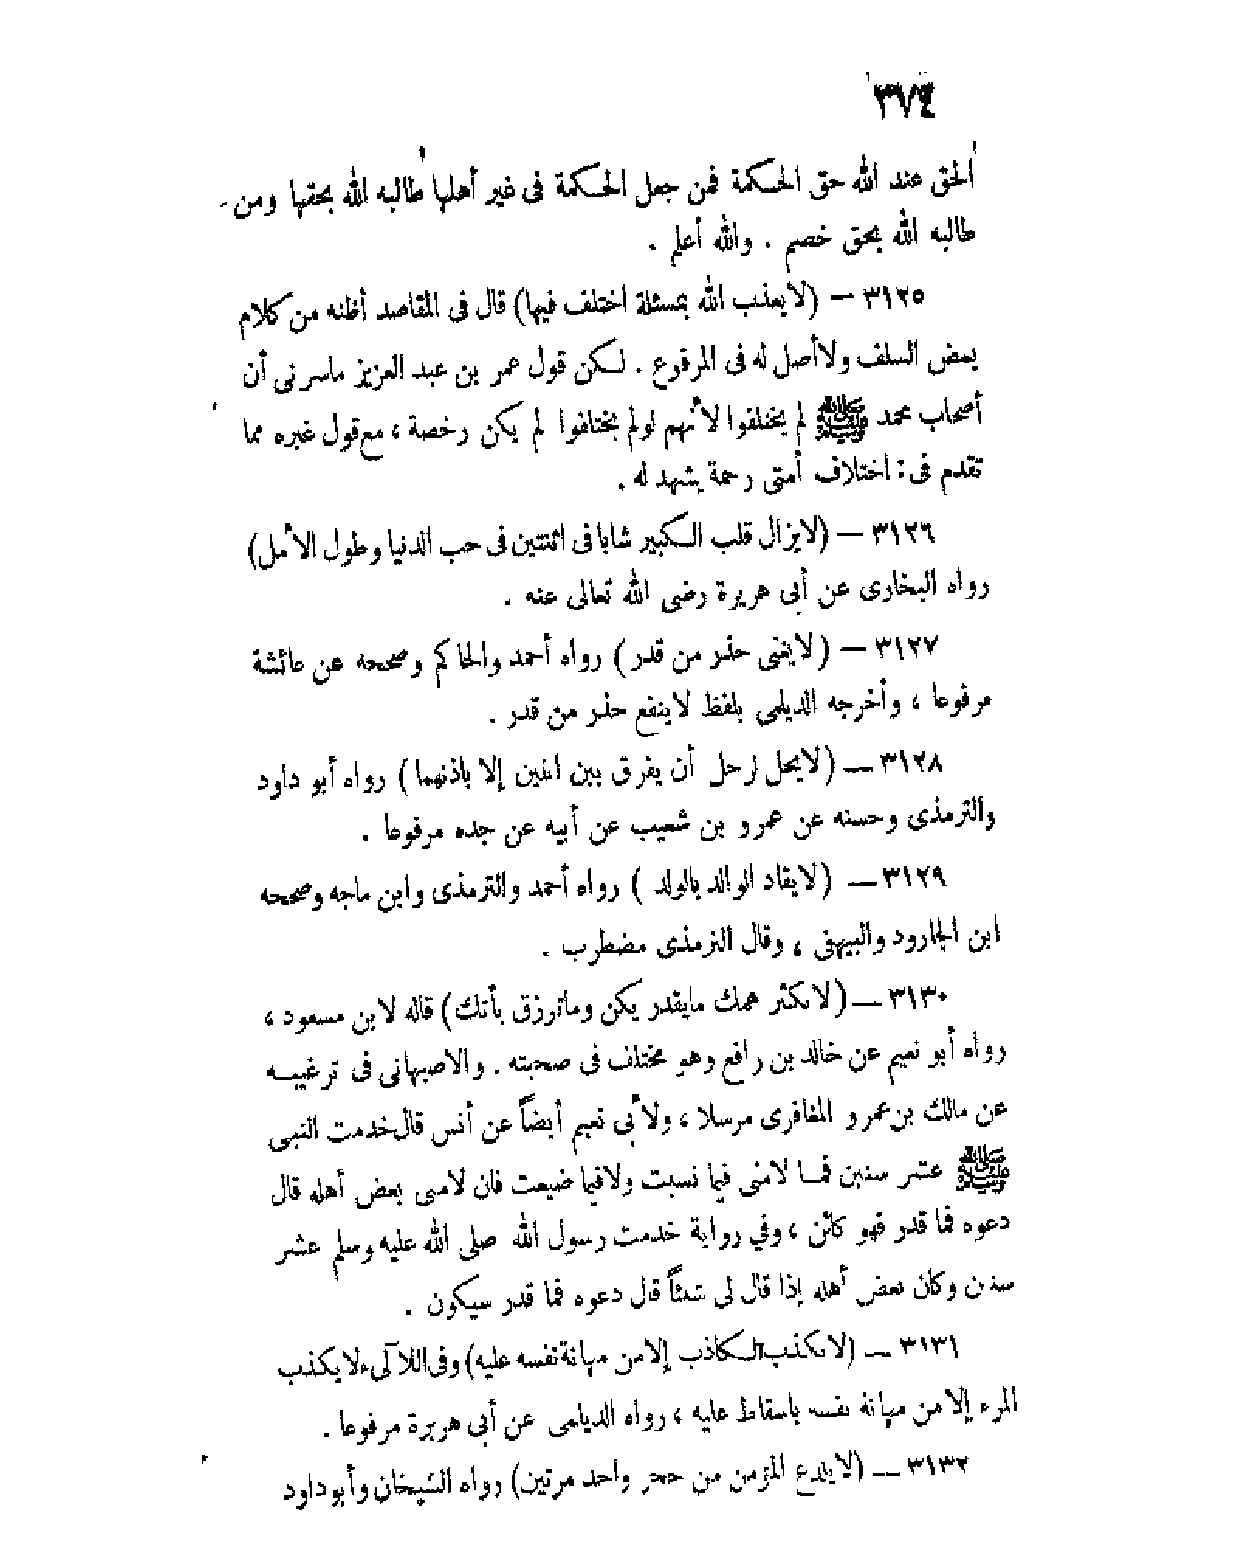 ٣٧٤
الحق عند الله حق الحكمة فمن جعل الحكمة فى غير أهلها طالبه الله بحقها ومن
طالبه الله بحق خصم . والله أعلم .
٣١٢٥ – (لايعذب الله بمسئلة اختلف فيها) قال فى المقاصد أظنه من كلام
بعض السلف ولاأصل له فى المرفوع . لكن قول عمر بن عبد العزيز ماسرنى أن
أصحاب محمد ﷺ لم يختلفوا لأنهم لولم يختلفوا لم يكن رخصة ، مع قول غيره مما
تقدم فى : اختلاف أمتى رحمة يشهد له .
٣١٢٦ – (لايزال قلب الكبير شابا فى اثنتين فى حب الدنيا وطول الأمل)
رواه البخارى عن أبى هريرة رضى الله تعالى عنه .
٣١٢٧ – (لايغنى حذر من قدر) رواه أحمد والحاكم وصححه عن عائشة
مرفوعا ، وأخرجه الديلمى بلفظ لاينفع حذر من قدر .
٣١٢٨ – (لايحل لرجل أن يفرق بين اثنين إلا باذنهما) رواه أبو داود
والترمذى وحسنه عن عمرو بن شعيب عن أبيه عن جده مرفوعا .
٣١٢٩ – (لايقاد الوالد بالولد) رواه أحمد والترمذى وابن ماجه وصححه
ابن الجارود والبيهقى ، وقال الترمذى مضطرب .
٣١٣٠ – (لاتكثر همك مايقدر يكن وماترزق يأتك) قاله لابن مسعود ،
رواه أبو نعيم عن خالد بن رافع وهو مختلف فى صحبته . والاصبهانى فى ترغيبه
عن مالك بن عمرو المغافرى مرسلا ، ولأبى نعيم أيضاً عن أنس قال خدمت النبى
ﷺ عشر سنين فما لامنى فيما نسيت ولافيما ضيعت فان لامنى بعض أهله قال
دعوه فما قدر فهو كائن ، وفي رواية خدمت رسول الله صلى الله عليه وسلم عشر
سنين وكان بعض أهله إذا قال لى شيئاً قال دعوه فما قدر سيكون .
٣١٣١ – (لايكذب الكاذب إلا من مهانة نفسه عليه) وفى اللآلىء لايكذب
المرء إلا من مهانة نفسه باسقاط عليه ، رواه الديلمى عن أبى هريرة مرفوعا .
٣١٣٢ – (لايلدغ المؤمن من جحر واحد مرتين) رواه الشيخان وأبوداود